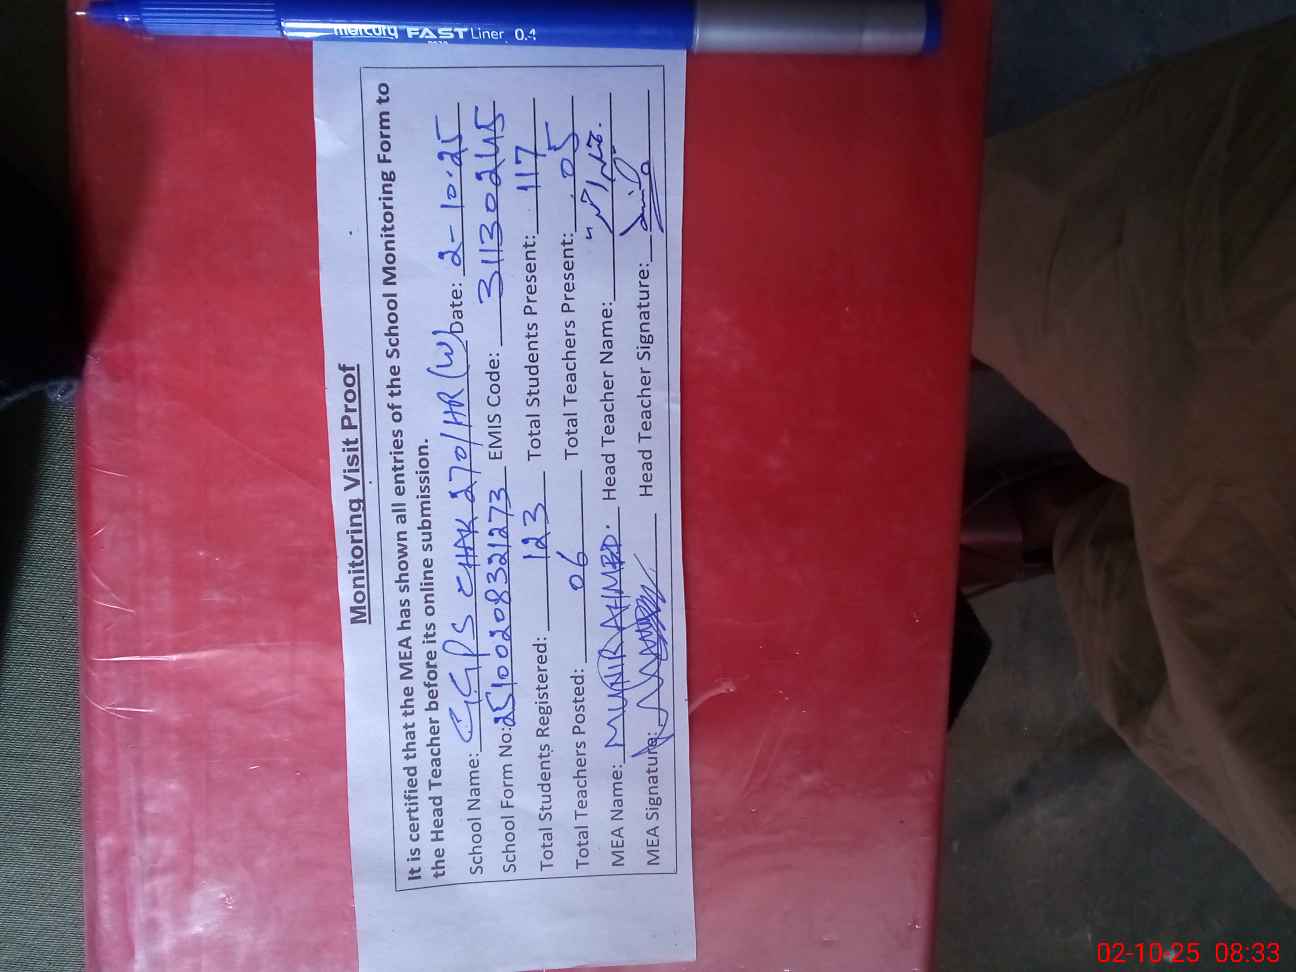 mercury FAST Liner 0.4
Monitoring Visit Proof
It is certified that the MEA has shown all entries of the School Monitoring Form to
the Head Teacher before its online submission.
School Name: GGPS CHAK 270/HR(W) Date: 2-10.25
School Form No: 25100208321273 EMIS Code: 31130245
Total Students Registered: 123 Total Students Present: 117
Total Teachers Posted: 06 Total Teachers Present: 05
MEA Name: MUNIR AHMED. Head Teacher Name:
MEA Signature: Head Teacher Signature:
02-10-25 08:33